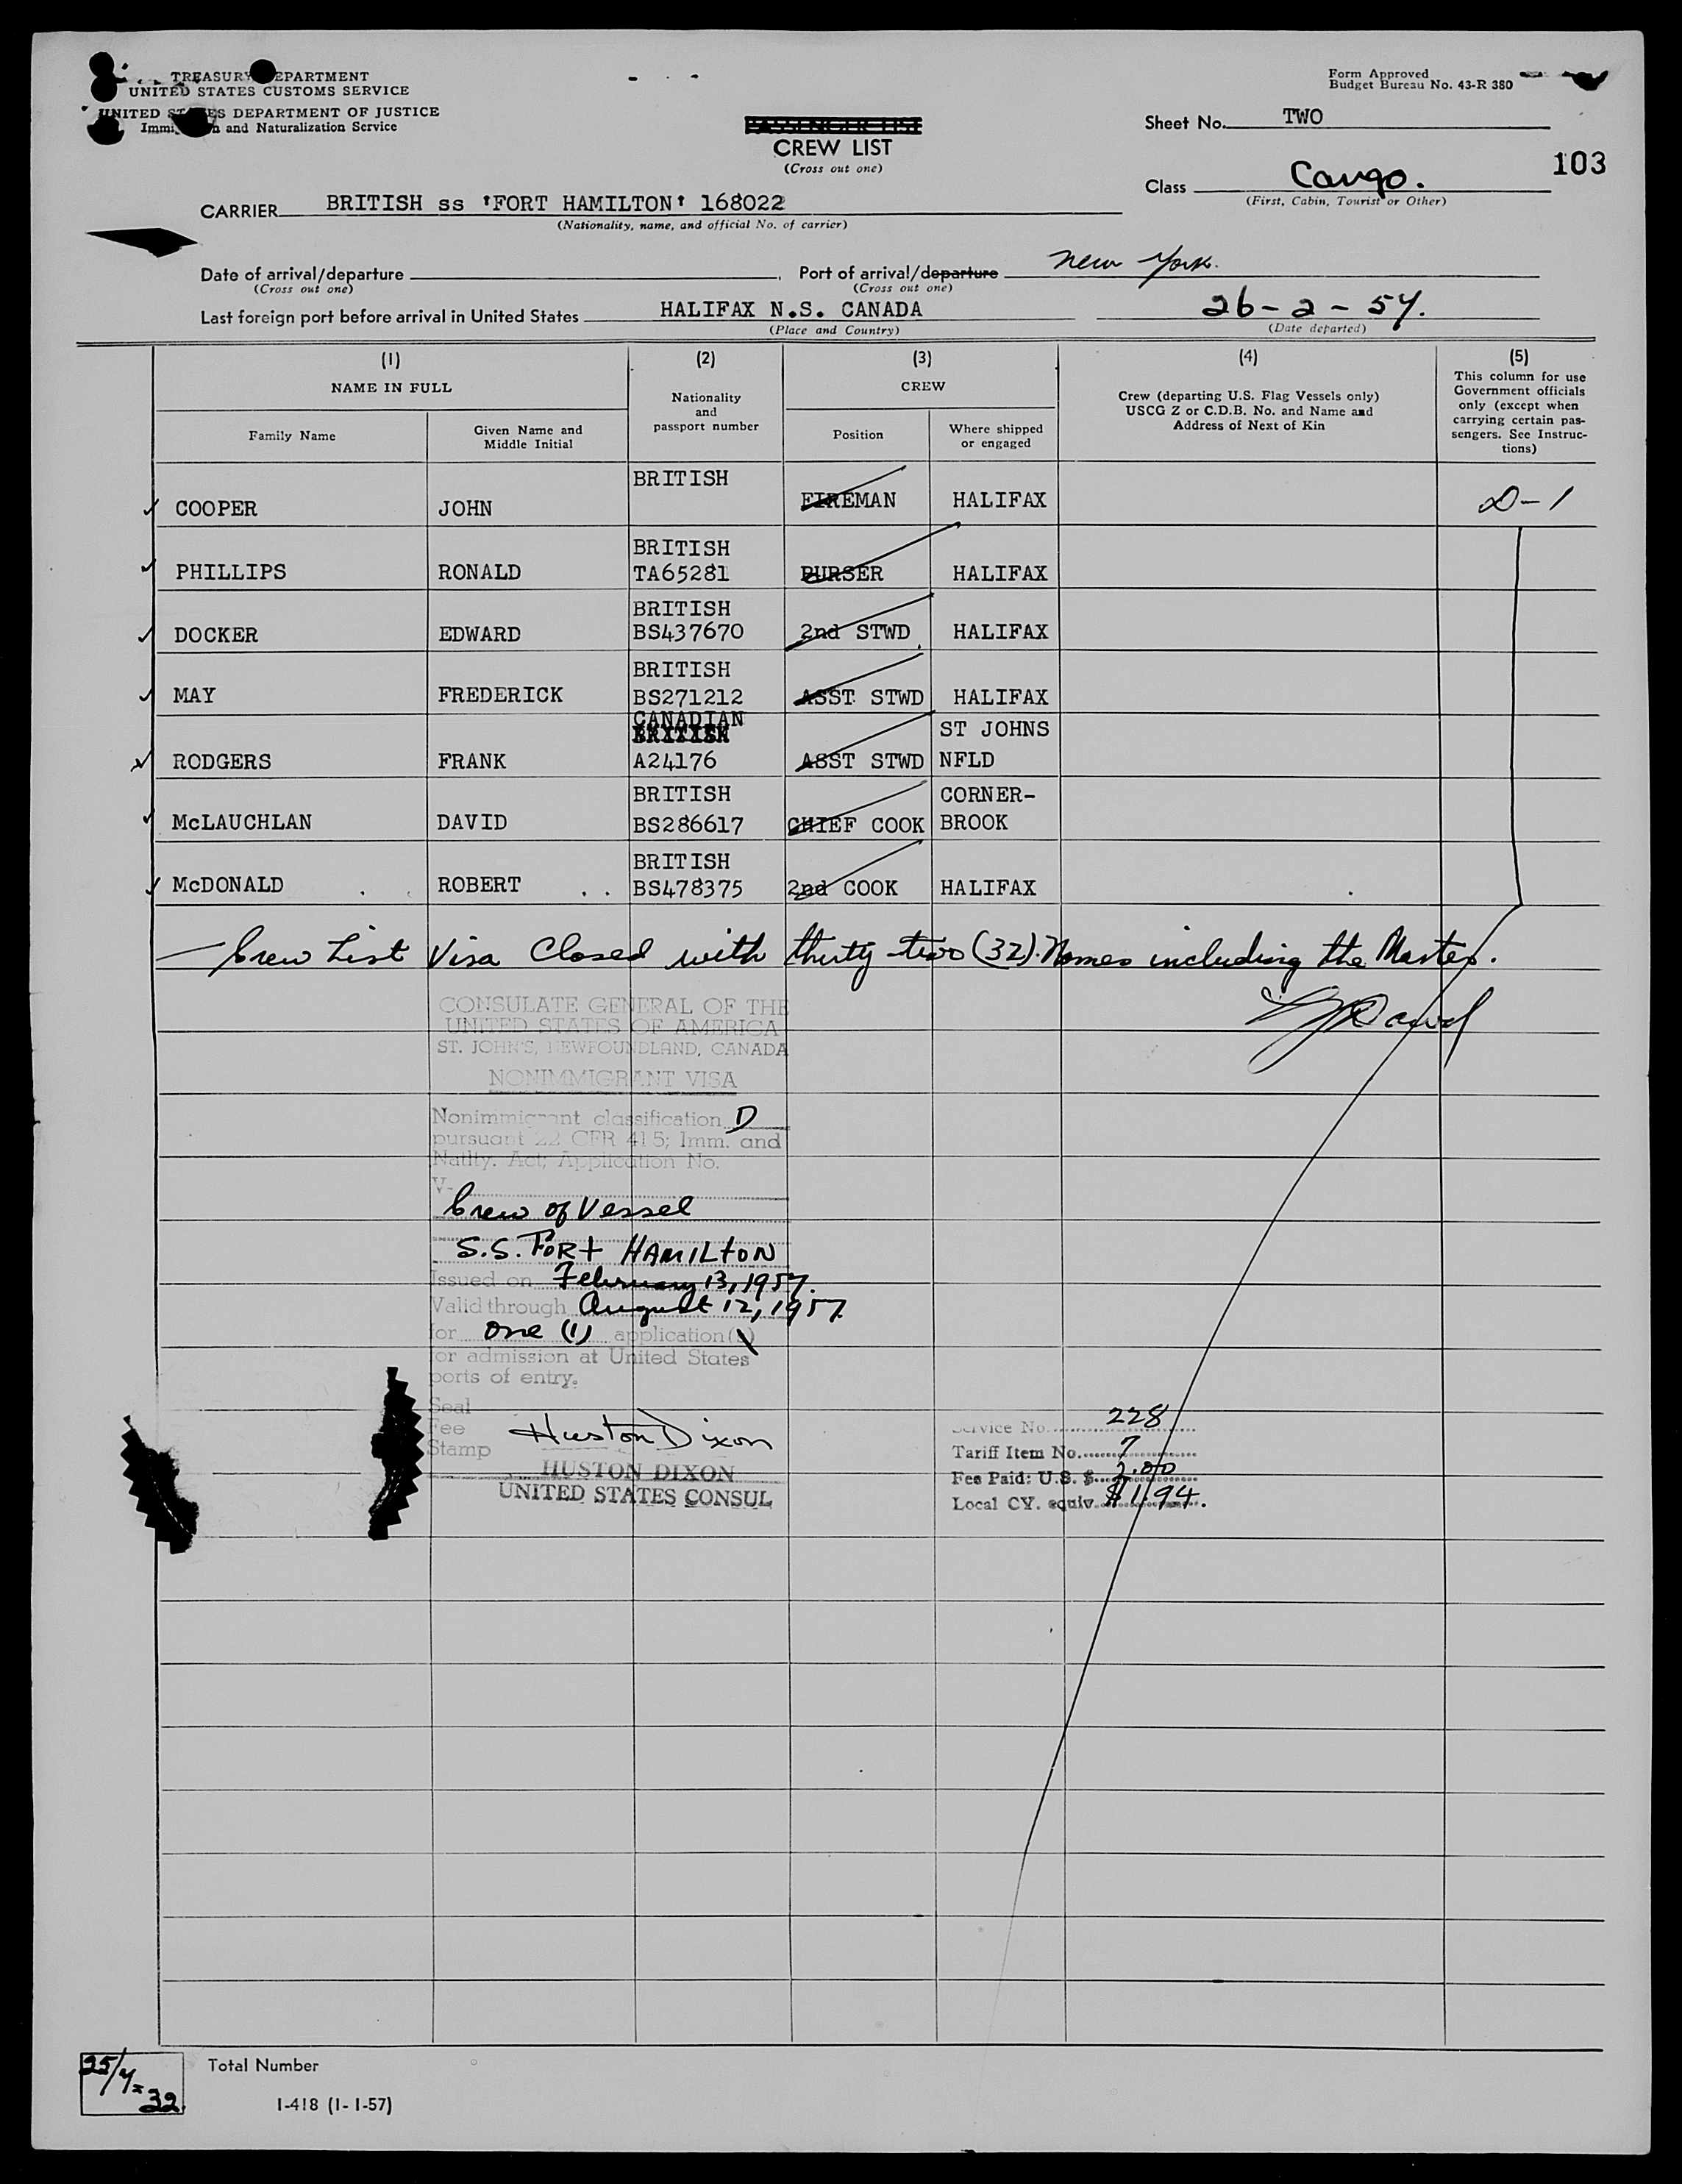 TREASURY DEPARTMENT
UNITED STATES CUSTOMS SERVICE
UNITED STATES DEPARTMENT OF JUSTICE
Immigration and Naturalization Service
Form Approved
Budget Bureau No. 43-R 380
PASSENGER LIST
CREW LIST
(Cross out one)
Sheet No. TWO
103
Class Cargo.
(First, Cabin, Tourist or Other)
CARRIER BRITISH ss 'FORT HAMILTON' 168022
(Nationality, name, and official No. of carrier)
Date of arrival/departure
(Cross out one)
Port of arrival/departure New York.
(Cross out one)
Last foreign port before arrival in United States HALIFAX N.S. CANADA 26-2-57.
(Place and Country) (Date departed)
(1) (2) (3) (4) (5)
NAME IN FULL
Family Name
Given Name and Middle Initial
Nationality and passport number
CREW
Position
Where shipped or engaged
Crew (departing U.S. Flag Vessels only)
USCG Z or C.D.B. No. and Name and
Address of Next of Kin
This column for use
Government officials
only (except when
carrying certain pas-
sengers. See Instruc-
tions)
COOPER JOHN BRITISH FIREMAN HALIFAX D-1
PHILLIPS RONALD BRITISH TA65281 PURSER HALIFAX
DOCKER EDWARD BRITISH BS437670 2nd STWD HALIFAX
MAY FREDERICK BRITISH BS271212 ASST STWD HALIFAX
RODGERS FRANK CANADIAN BRITISH A24176 ASST STWD ST JOHNS NFLD
McLAUCHLAN DAVID BRITISH BS286617 CHIEF COOK CORNER-BROOK
McDONALD ROBERT BRITISH BS478375 2nd COOK HALIFAX
Crew List Visa Closed with thirty-two (32). Names including the Master.
CONSULATE GENERAL OF THE
UNITED STATES OF AMERICA
ST. JOHN'S, NEWFOUNDLAND, CANADA
NONIMMIGRANT VISA
Nonimmigrant classification D
pursuant 22 CFR 41 5; Imm. and
Natlty. Act; Application No.
V-
Crew of Vessel
S.S. Fort Hamilton
Issued on February 13, 1957.
Valid through August 12, 1957
for one (1) application(s)
for admission at United States
ports of entry.
Seal
Fee
Stamp
Huston Dixon
HUSTON DIXON
UNITED STATES CONSUL
Service No. 228
Tariff Item No. 7
Fee Paid: U.S. $ 2.00
Local CY. equiv. $1.94.
25/7=32
Total Number
I-418 (1-1-57)